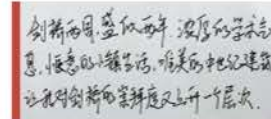 剑桥两周,盛似两年。浓厚的学术气
息,惬意的小镇生活,唯美的中世纪建筑
让我对剑桥的崇拜度又上升一个层次.